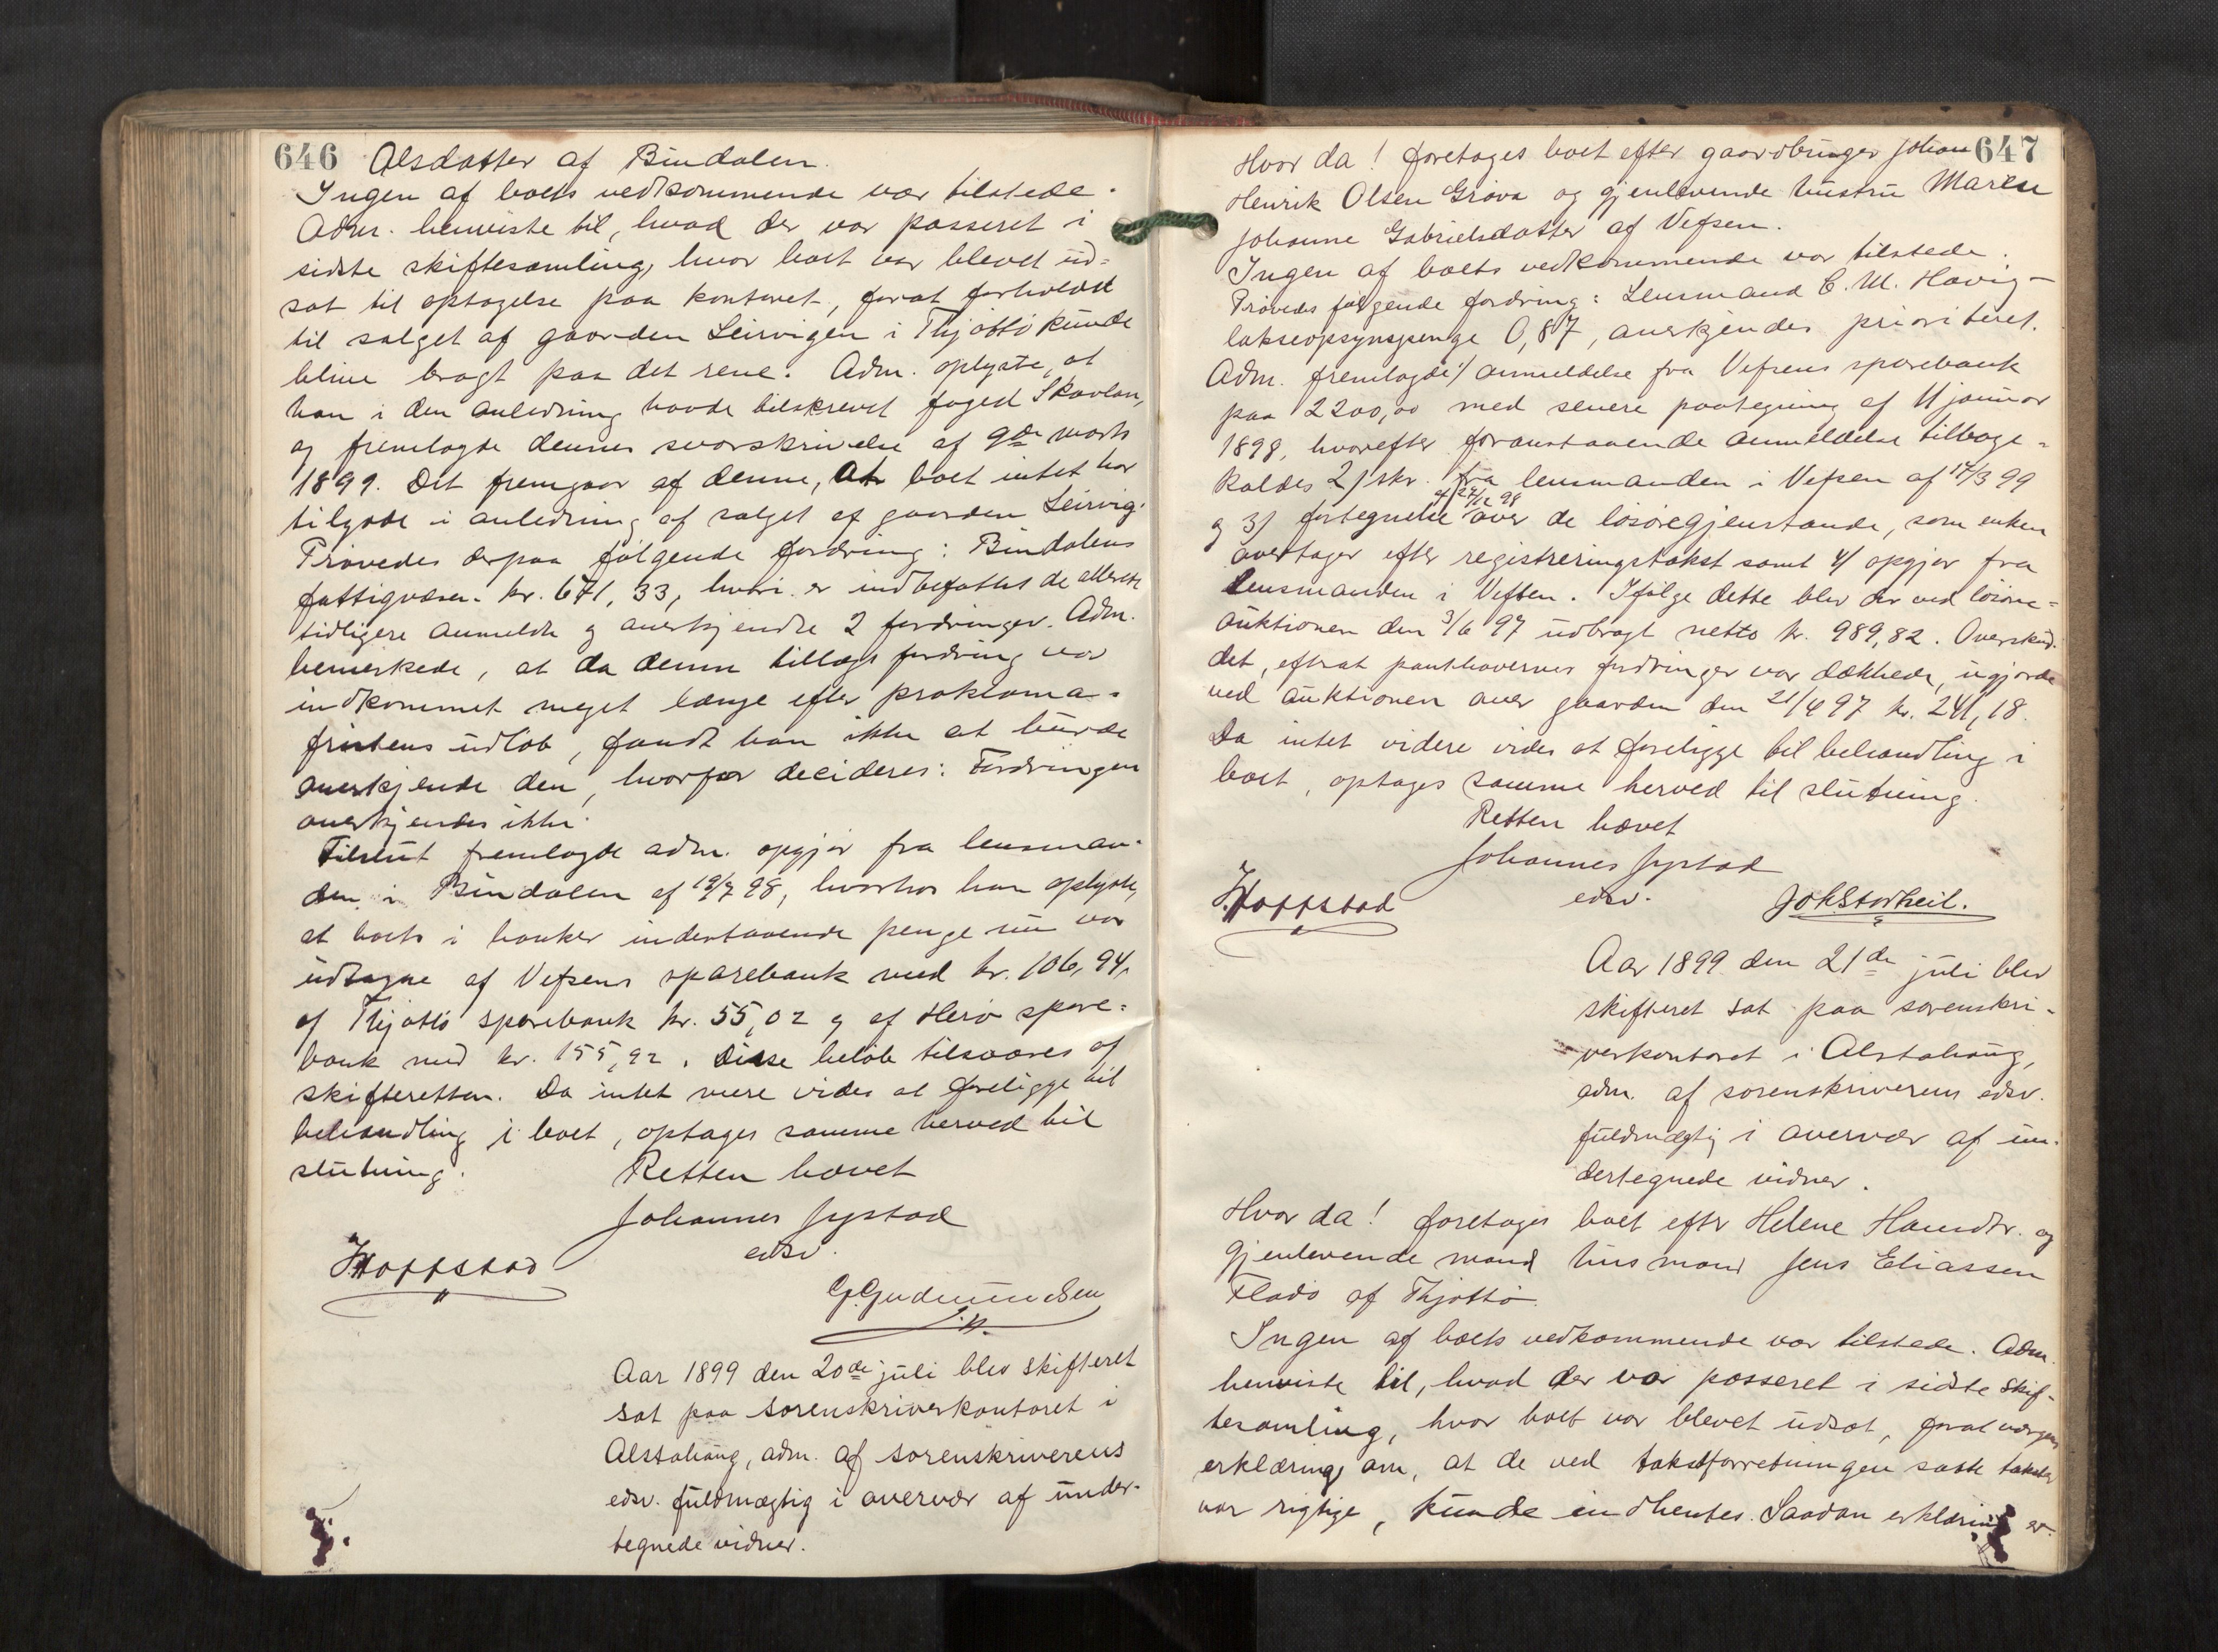 646
Olsdatter af Bindalen.
Ingen af boets vedkommende var tilstede.
Adm. henviste til, hvad der var passeret i
sidste skiftesamling, hvor boet var blevet ud=
sat til optagelse paa kontoret, forat forholdet
til salget af gaarden Leirvigen i Thjøttø kunde
blive bragt paa det rene. Adm. oplyste, at
han i den anledning havde tilskrevet foged Skavlan,
og fremlagde dennes svarskrivelse af 9de marts
1899. Det fremgaar af denne, at boet intet har
tilgode i anledning af salget af gaarden Leirvig.
Prøvedes derpaa følgende fordring: Bindalens
fattigvæsen kr. 671,33, hvori er indbefattet de allerede
tidligere anmeldte og anerkjendte 2 fordringer. Adm.
bemerkede, at da denne tillægsfordring var
indkommet meget længe efter proklama=
fristens udløb, fandt han ikke at burde
anerkjende den, hvorfor decideres: Fordringen
anerkjendes ikke.
Tilslut fremlagde adm. opgjør fra lensman-
den i Bindalen af 19/7 98, hvorhos han oplyste,
at boets i banker indestaaende penge nu var
udtagne af Vefsens sparebank med kr. 106,94,
af Thjøttø sparebank kr. 55,02 og af Herø spare=
bank med kr. 155,92. Disse beløb tilsvares af
skifteretten. Da intet mere vides at foreligge til
behandling i boet, optages samme herved til
slutning.
Retten hævet
Johannes Jystad
edsv.
Hoffstad
G. Gudmundsen
Aar 1899 den 20de juli blev skifteret
sat paa sorenskriverkontoret i
Alstahaug, adm. af sorenskriverens
edsv. fuldmægtig i overvær af under-
tegnede vidner.
647
Hvor da! foretages boet efter gaardbruger Johan
Henrik Olsen Grova og gjenlevende hustru Maren
Johanne Gabrielsdatter af Vefsen.
Ingen af boets vedkommende var tilstede.
Prøvedes følgende fordring: Lensmand C. M. Havig –
lakseopsynspenge 0,87, anerkjendes prioriteret.
Adm. fremlagde 1/ anmeldelse fra Vefsens sparebank
paa 2200,00 med senere paategning af 11 januar
1898, hvorefter foranstaaende anmeldelse tilbage=
kaldes 2/ skr. fra lensmanden i Vefsen af 17/3 99
og 3/ fortegnelse af 24/12 98 over de løsøregjenstande, som enken
overtager efter registreringstakst samt 4/ opgjør fra
lensmanden i Vefsen. Ifølge dette blev der ved løsøre=
auktionen den 3/6 97 udbragt netto kr. 989,82. Overskud-
det, efterat panthavernes fordringer var dækkede, ugjorde
ved auktionen over gaarden den 21/4 97 kr. 241,18.
Da intet videre vides at foreligge til behandling i
boet, optages samme herved til slutning.
Retten hævet
Johannes Jystad
edsv.
Hoffstad
Joh Storheil.
Aar 1899 den 21de juli blev
skifteret sat paa sorenskri-
verkontoret i Alstahaug,
adm. af sorenskriverens edsv.
fuldmægtig i overvær af un-
dertegnede vidner.
Hvor da! foretages boet efter Helene Hansdtr. og
gjenlevende mand husmand Jens Eliassen
Flado af Thjøttø.
Ingen af boets vedkommende var tilstede. Adm.
henviste til, hvad der var passeret i sidste skif-
tesamling, hvor boet var blevet udsat, forat værgens
erklæring om, at de ved takstforretningen satte takster
var rigtige, kunde indhentes. Saadan erklæring er